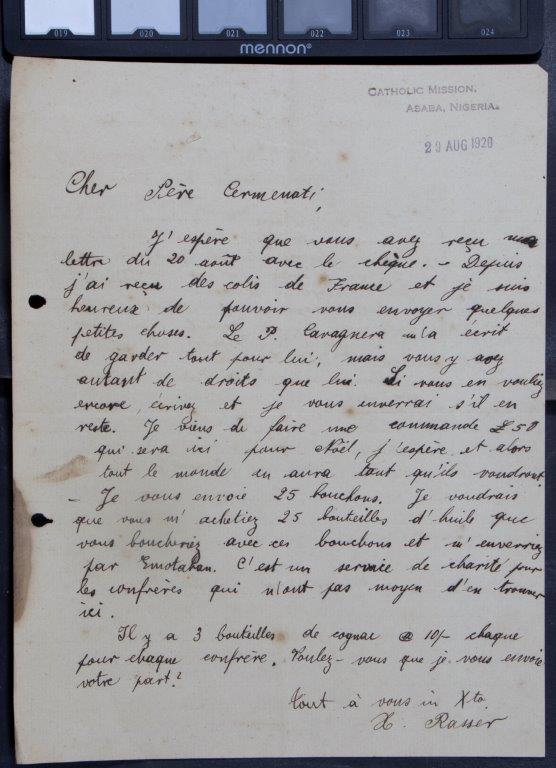 019 020 021 022 023 024
mennon®
CATHOLIC MISSION,
ASABA, NIGERIA.
29 AUG 1920
Cher Père Cermenati,
J'espère que vous avez reçu ma
lettre du 20 août avec le chèque. - Depuis
j'ai reçu des colis de France et je suis
heureux de pouvoir vous envoyer quelques
petites choses. Le P. Cavagnera m'a écrit
de garder tout pour lui, mais vous y avez
autant de droits que lui. Si vous en vouliez
encore, écrivez et je vous enverrai s'il en
reste. Je viens de faire une commande £50
qui sera ici pour Noël, j'espère et alors
tout le monde en aura tant qu'ils voudront
- Je vous envoie 25 bouchons. Je voudrais
que vous m'achetiez 25 bouteilles d'huile que
vous boucheriez avec ces bouchons et m'enverriez
par Emotahan. C'est un service de charité pour
les confrères qui n'ont pas moyen d'en trouver
ici.
Il y a 3 bouteilles de cognac @ 10/- chaque
pour chaque confrère. Voulez-vous que je vous envoie
votre part?
tout à vous in Xto.
X. Rasser